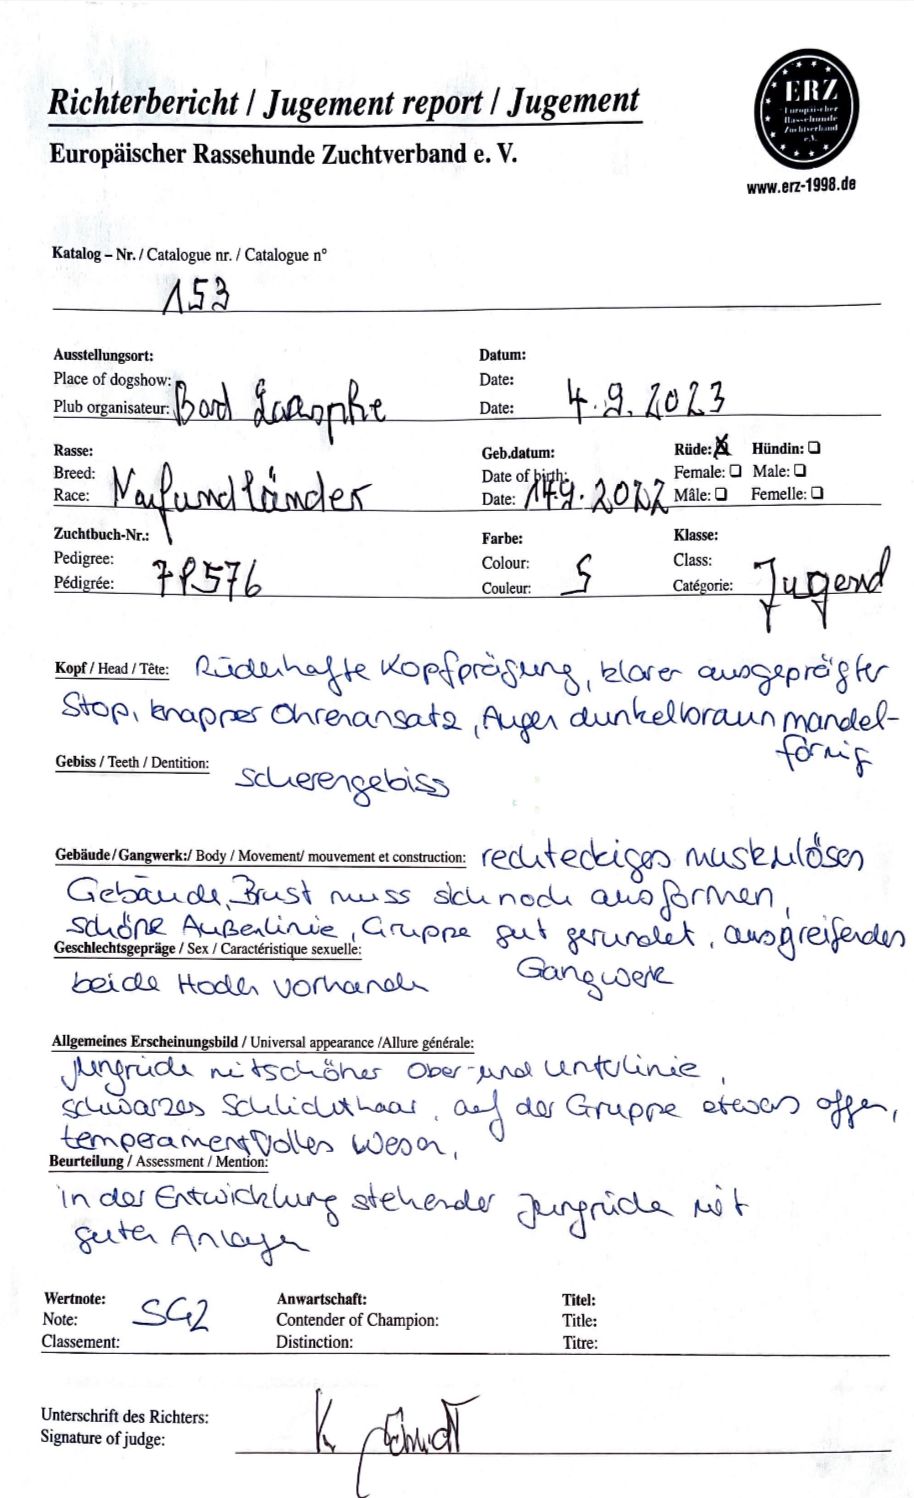 Richterbericht / Jugement report / Jugement
Europäischer Rassehunde Zuchtverband e. V.
ERZ
Europäischer
Rassehunde
Zuchtverband
e.V.
www.erz-1998.de
Katalog – Nr. / Catalogue nr. / Catalogue n°
153
Ausstellungsort:
Place of dogshow:
Plub organisateur: Bad Laasphe
Datum:
Date:
Date: 4.9.2023
Rasse:
Breed:
Race: Neufundländer
Geb.datum:
Date of birth:
Date: 14.9.2022
Rüde: Hündin:
Female: Male:
Mâle: Femelle:
Zuchtbuch-Nr.:
Pedigree:
Pédigrée: 576
Farbe:
Colour:
Couleur: S
Klasse:
Class:
Catégorie: Jugend
Kopf / Head / Tête: Rüdenhafte Kopfprägung, klarer ausgeprägter
Stop, knapper Ohrenansatz, Augen dunkelbraun mandel-
förmig
Gebiss / Teeth / Dentition: Scherengebiss
Gebäude/Gangwerk:/ Body / Movement/ mouvement et construction: rechteckiges muskulöses
Gebäude, Brust muss sich noch ausformen,
schöne Außenlinie, Gruppe gut gerundet, ausgreifendes
Gangwerk
Geschlechtsgepräge / Sex / Caractéristique sexuelle:
beide Hoden vorhanden
Allgemeines Erscheinungsbild / Universal appearance /Allure générale:
Jungrüde mit schöner Ober- und Unterlinie,
schwarzes Schlichthaar, auf der Gruppe etwas offen,
temperamentvolles Wesen,
Beurteilung / Assessment / Mention:
in der Entwicklung stehender Jungrüde mit
guten Anlagen
Wertnote:
Note: SG2
Classement:
Anwartschaft:
Contender of Champion:
Distinction:
Titel:
Title:
Titre:
Unterschrift des Richters:
Signature of judge: K. Schmidt